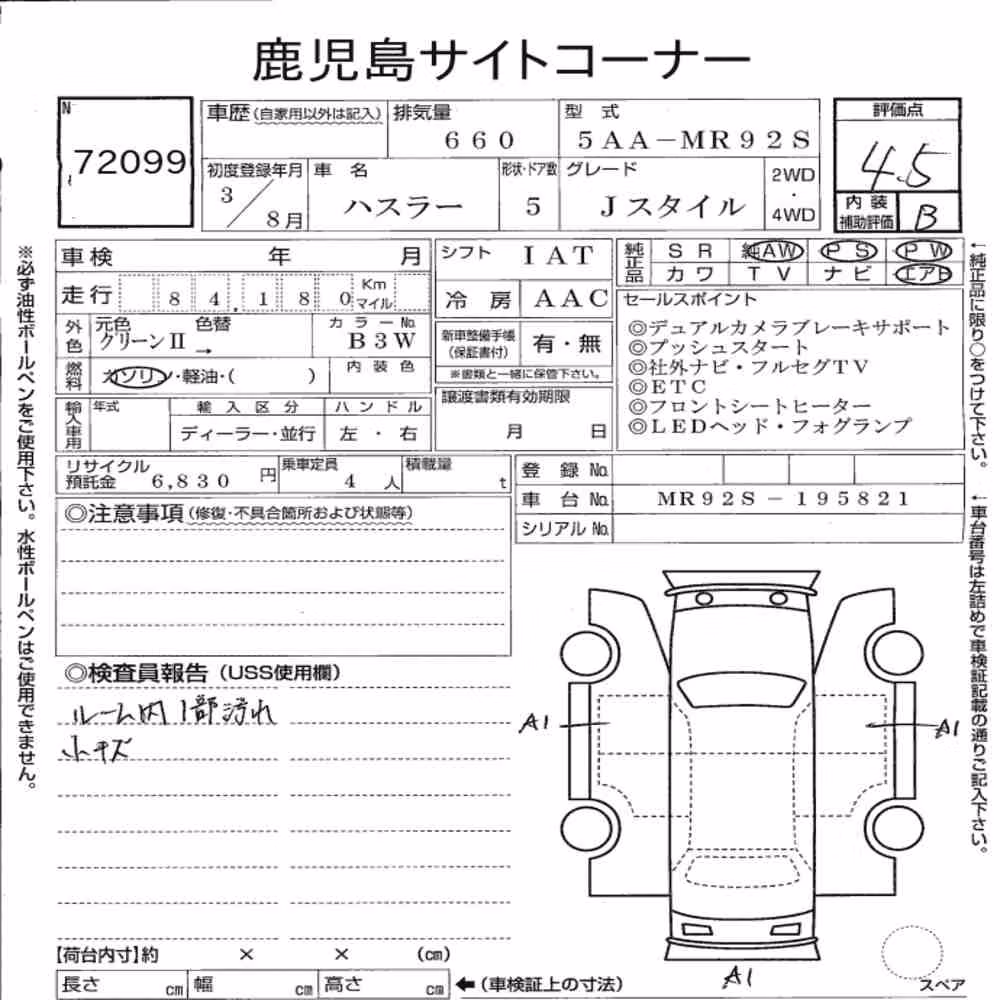 鹿児島サイトコーナー
N
72099
車歴(自家用以外は記入) 排気量 660 型式 5AA-MR92S
初度登録年月 3/8月 車名 ハスラー 形状・ドア数 5 グレード Jスタイル 2WD・4WD
評価点 4.5
内装補助評価 B
車検 年 月
走行 84,180 Km マイル
外色 元色 グリーンII → 色替 カラーNo. B3W
燃料 ガソリン・軽油・( ) 内装色
輸入車用 年式 輸入区分 ディーラー・並行 ハンドル 左・右
シフト IAT
冷房 AAC
新車整備手帳(保証書付) 有・無
※書類と一緒に保管下さい。
譲渡書類有効期限
月 日
純正品 SR 純AW PS PW
カワ TV ナビ エアB
セールスポイント
◎デュアルカメラブレーキサポート
◎プッシュスタート
◎社外ナビ・フルセグTV
◎ETC
◎フロントシートヒーター
◎LEDヘッド・フォグランプ
リサイクル預託金 6,830円 乗車定員 4人 積載量 t
登録No.
車台No. MR92S-195821
シリアルNo.
◎注意事項(修復・不具合箇所および状態等)
◎検査員報告(USS使用欄)
ルーム内1部汚れ
小キズ
A1
A1
A1
スペア
【荷台内寸】約 × × (cm)
長さ cm 幅 cm 高さ cm ←(車検証上の寸法)
※必ず油性ボールペンをご使用下さい。水性ボールペンはご使用できません。
←純正品に限り○をつけて下さい。
←車台番号は左詰めで車検証記載の通りご記入下さい。